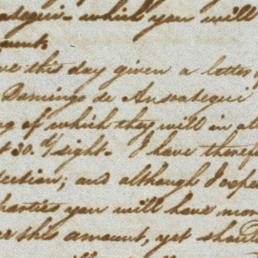 which you will
this day given a letter
Domingo de
of which they will in
30 d/ sight. I have therefo
ection; and although I expe
parties you will have mon
this amount, yet shou